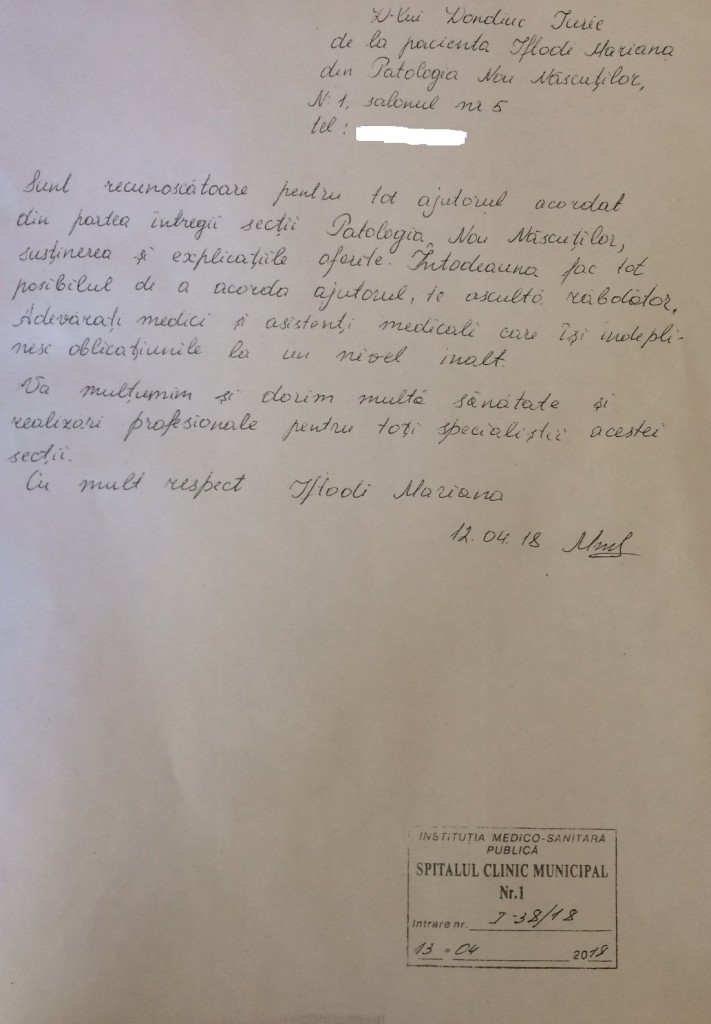 D-lui Dondiuc Iurie
de la pacienta Iflodi Mariana
din Patologia Nou Născuților,
N: 1, salonul nr 5
tel:
Sunt recunoscătoare pentru tot ajutorul acordat
din partea întregii secții Patologia, Nou Născuților,
susținerea și explicațiile oferite. Întodeauna fac tot
posibilul de a acorda ajutorul, te ascultă răbdător,
Adevărați medici și asistenți medicali care își indepli-
nesc oblicațiunile la un nivel inalt.
Va mulțumim și dorim multă sănătate și
realizari profesionale pentru toți specialiștii acestei
secții.
Cu mult respect Iflodi Mariana
12.04.18
INSTITUȚIA MEDICO-SANITARĂ
PUBLICĂ
SPITALUL CLINIC MUNICIPAL
Nr.1
Intrare nr. I-38/18
13 - 04 2018